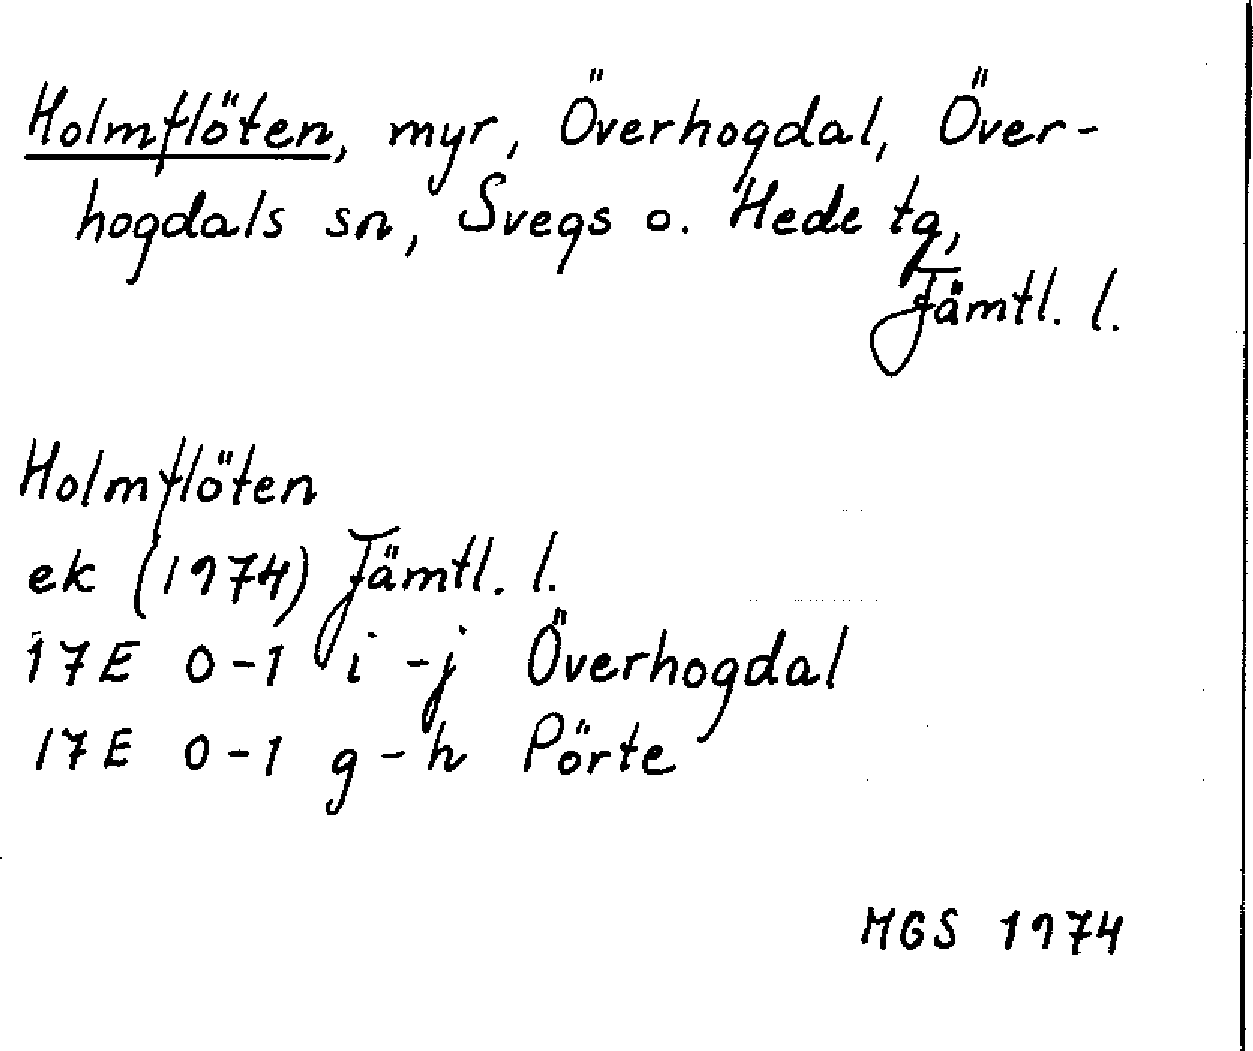 Holmflöten, myr, Överhogdal, Över-
hogdals sn, Svegs o. Hede tg,
Jämtl. l.
Holmflöten
ek (1974) Jämtl. l.
17E 0-1 i-j Överhogdal
17E 0-1 g-h Pörte
MGS 1974